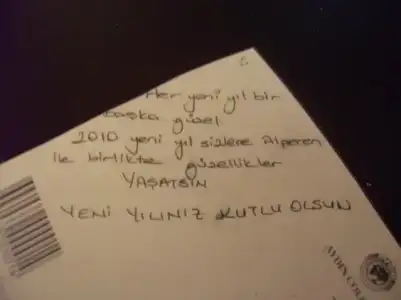 Her yeni yıl bir
başka güzel
2010 yeni yıl sizlere Alperen
ile birlikte güzellikler
YAŞATSIN
YENİ YILINIZ KUTLU OLSUN
AYDIN